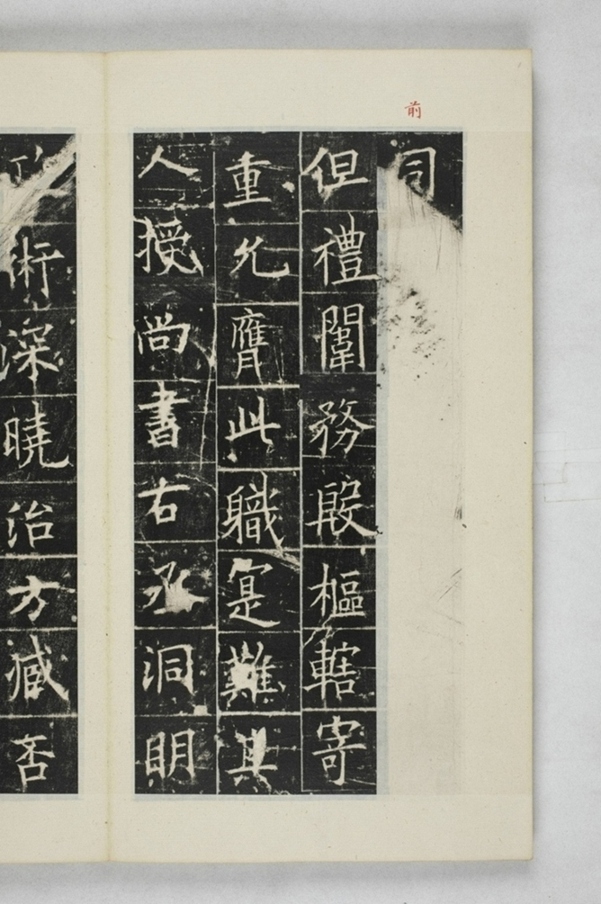 前
司
但禮闈務殷樞轄寄
重允膺此職寔難其
人授尚書右丞洞明
術深曉治方臧否